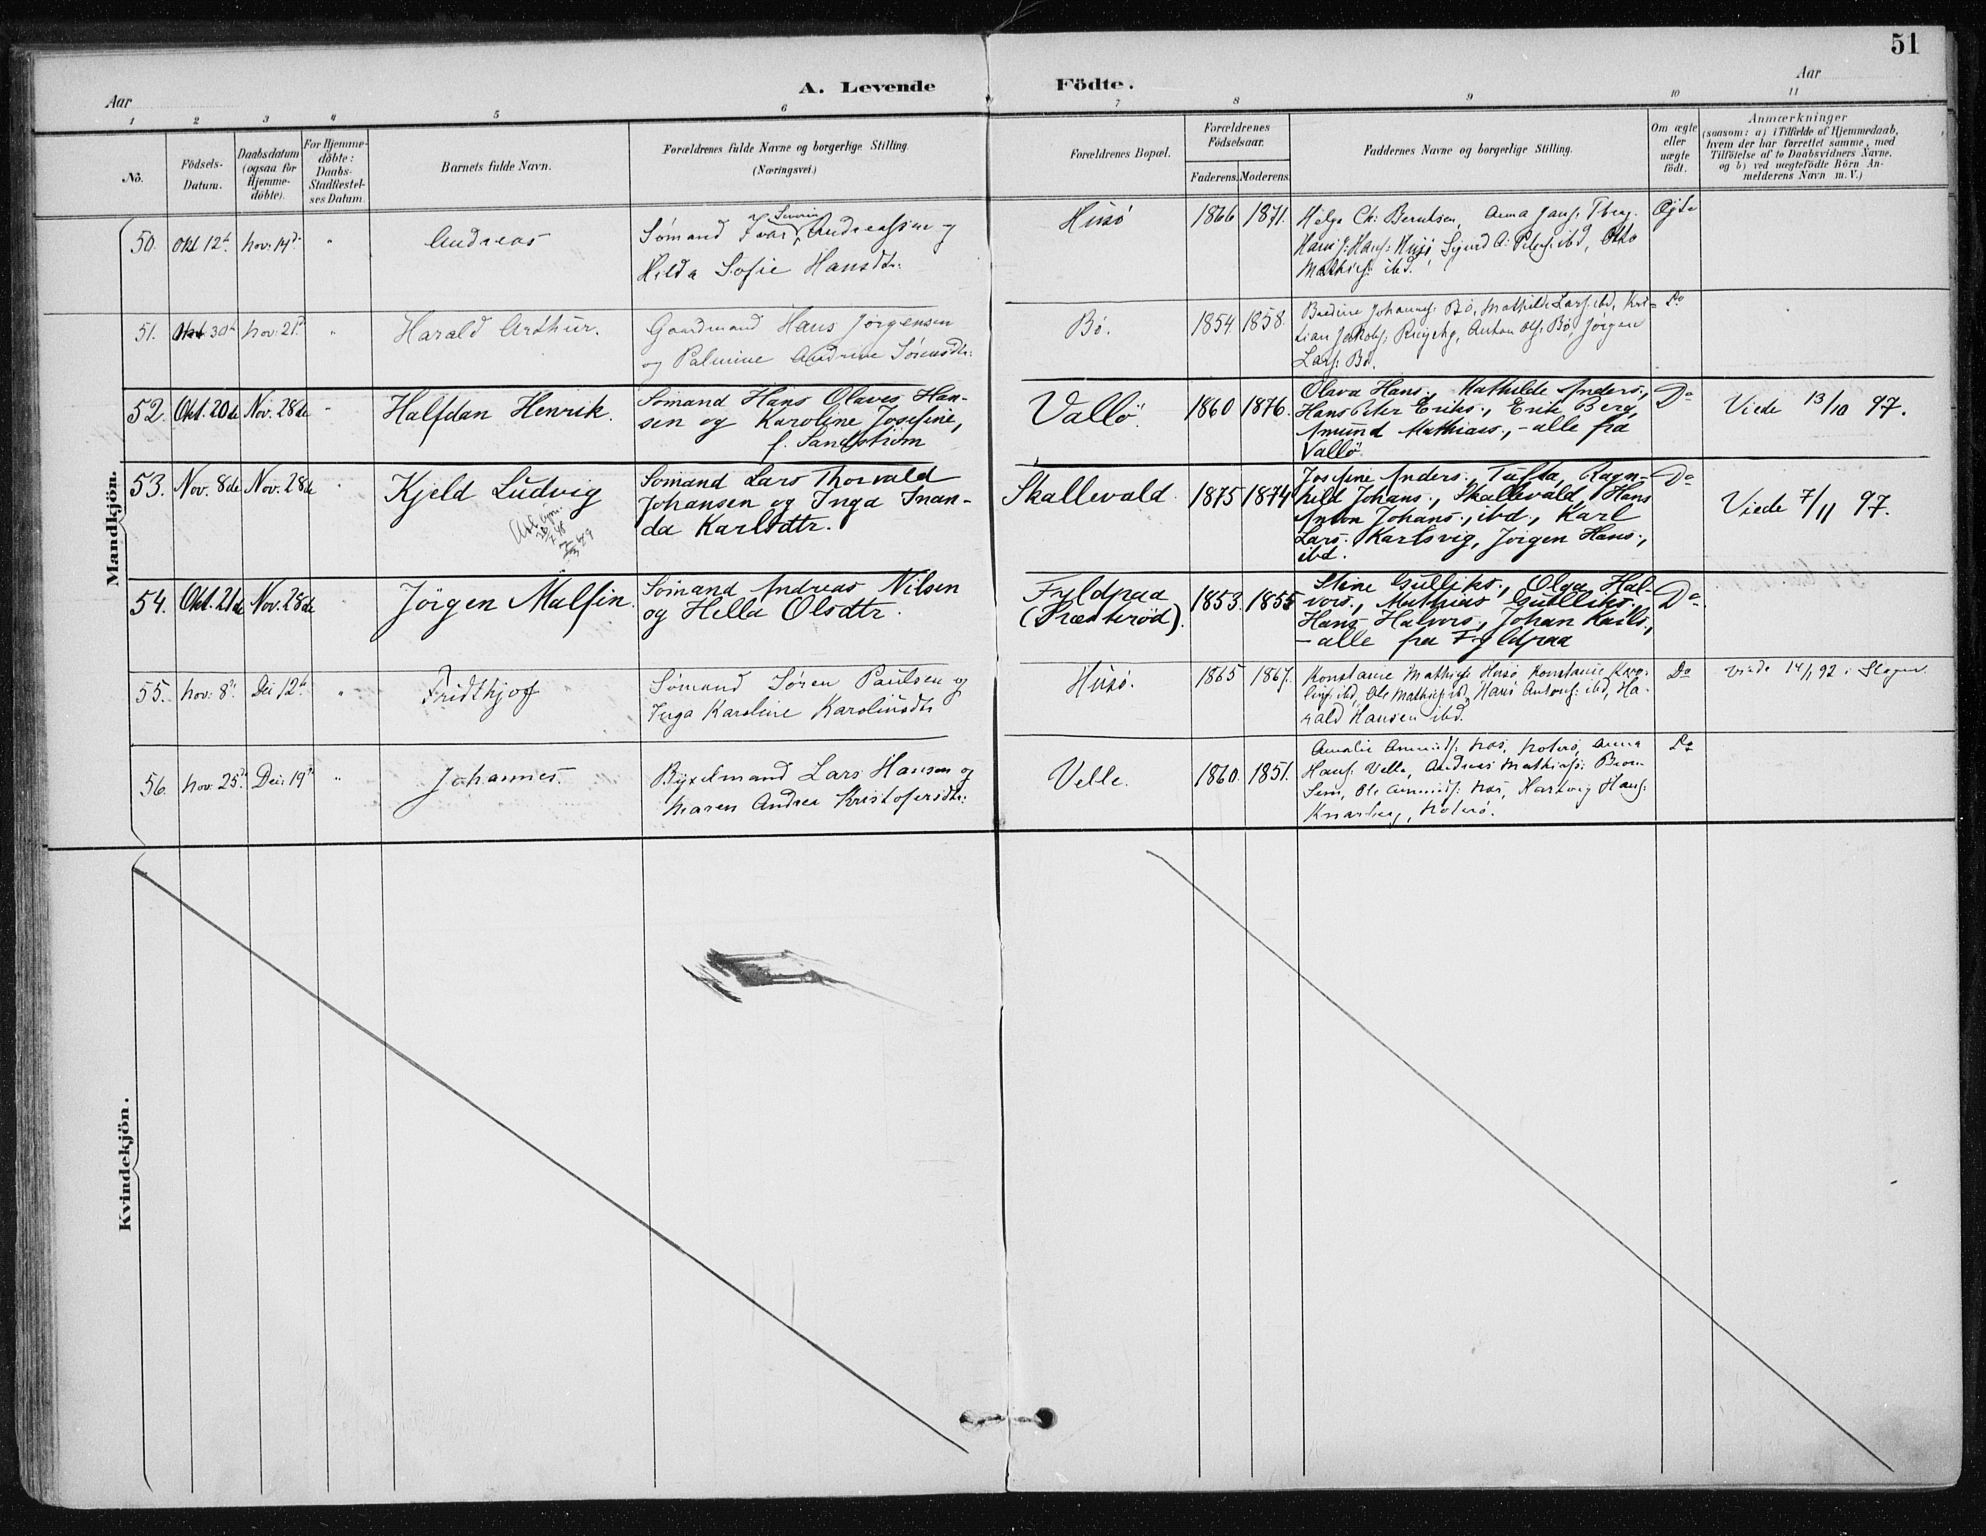 51
Aar
A. Levende Födte.
Aar
1 2 3 4 5 6 7 8 9 10 11
No.
Födsels-
Datum.
Daabsdatum
(ogsaa for
Hjemme-
döbte).
For Hjemme-
döbte:
Daabs-
Stadfæstel-
ses Datum.
Barnets fulde Navn.
Forældrenes fulde Navne og borgerlige Stilling.
(Næringsvei.)
Forældrenes Bopæl.
Forældrenes
Födselsaar.
Faderens. Moderens.
Faddernes Navne og borgerlige Stilling.
Om ægte
eller
uægte
födt.
Anmærkninger
(saasom: a) i Tilfælde af Hjemmedaab,
hvem der har forrettet samme, med
Tilföielse af to Daabsvidners Navne.
og b) ved uægtefödte Börn An-
melderens Navn m. V.)
Mandkjön.
50. Okt 12te Nov: 14de " Andreas
Sømand Ivar Severin Andreassen og
Hilda Sofie Hansdtr:
Husø 1866 1871.
Helga Ch: Berntsen, Anna Jans:
Hans J: Hans: Husø, Sigurd A: Peters: ibd, Otto
Mathias: ibd.
Ægte
51. Okt 30te Nov: 21de " Harald Arthur.
Gaardmand Hans Jørgensen
og Palmine Andrine Sørensdtr:
Bø. 1854 1858.
Johannes: Bø, Mathilde Lars: ibd, Kris-
tian Jakobs: Ringshg, Anton Ols: Bø, Jørgen
Lars: Bø.
Do
52. Okt. 20de Nov. 28de " Halfdan Henrik.
Sömand Hans Olaves Han-
sen og Karoline Josefine,
f. Sandström
Vallö. 1860 1876.
Olava Hans., Mathilde Anders.,
Hans Peter Eriks., Erik Berg,
Amund Mathias., – alle fra
Vallö.
Do Viede 13/10 97.
53. Nov. 8de Nov. 28de " Kjeld Ludvig
Sömand Lars Thorvald
Johansen og Inga Inan-
da Karlsdtr.
Skallevald. 1875 1874
Josefine Anders., Tufta, Ragn-
hild Johans., Skallevald, Hans
Anton Johans., ibd., Karl
Lars. Karlsvig, Jörgen Hans.,
ibd.
Do Viede 7/11 97.
54. Okt. 21de Nov. 28de " Jörgen Malfin.
Sömand Andreas Nilsen
og Hella Olsdtr.
Fyldpaa
(Præsterød). 1853. 1855
Stine Gulliks., Olga Hal-
vors., Mathias Gulliks.,
Hans Halvors., Johan Karls.,
– alle fra Fyldpaa
Do
55. Nov: 8de Dec 12te " Fridthjof
Sømand Søren Paulsen og
Inga Karoline Karolinsdtr
Husø. 1865 1867.
Konstanse Mathias: Husø, Konstanse Karo-
lius: ibd, Ole Mathias: ibd, Hans Antons: ibd, Ha-
rald Hansen ibd.
Do viede 14/1 92 i Slagen.
56. Nov: 25de Dec: 19de " Johannes.
Byxelmand Lars Hansen og
Maren Andrea Kristofersdtr:
Velle. 1860. 1851.
Amalie Amunds: Nøterø, Anna
Hans: Velle, Andreas Mathias:
Sem, Ole Amunds: Hartvig Hans:
Knarberg, Nøterø.
Do
Kvindekjön.